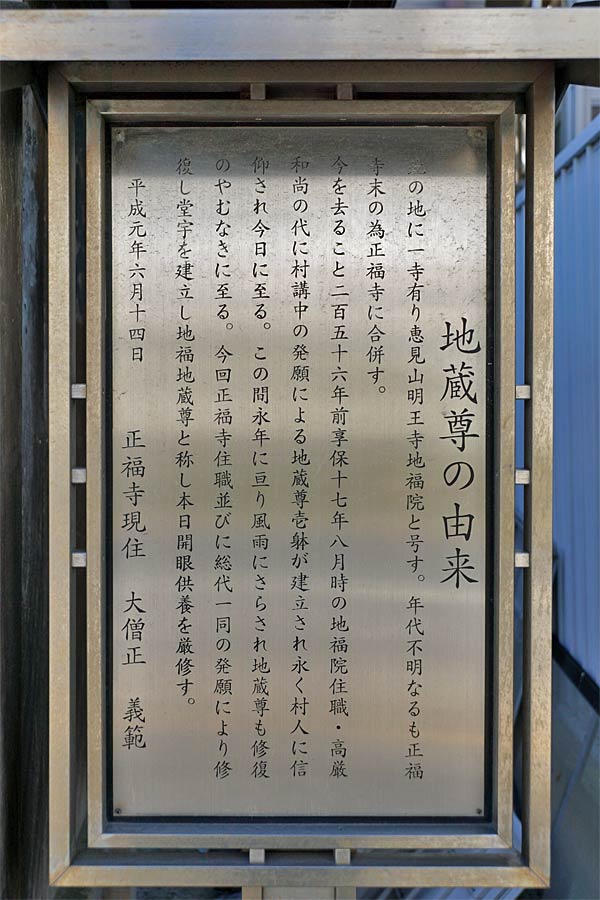 地蔵尊の由来
の地に一寺有り恵見山明王寺地福院と号す。年代不明なるも正福
寺末の為正福寺に合併す。
今を去ること二百五十六年前享保十七年八月時の地福院住職・高厳
和尚の代に村講中の発願による地蔵尊壱躰が建立され永く村人に信
仰され今日に至る。この間永年に亘り風雨にさらされ地蔵尊も修復
のやむなきに至る。今回正福寺住職並びに総代一同の発願により修
復し堂宇を建立し地福地蔵尊と称し本日開眼供養を厳修す。
平成元年六月十四日 正福寺現住 大僧正 義範